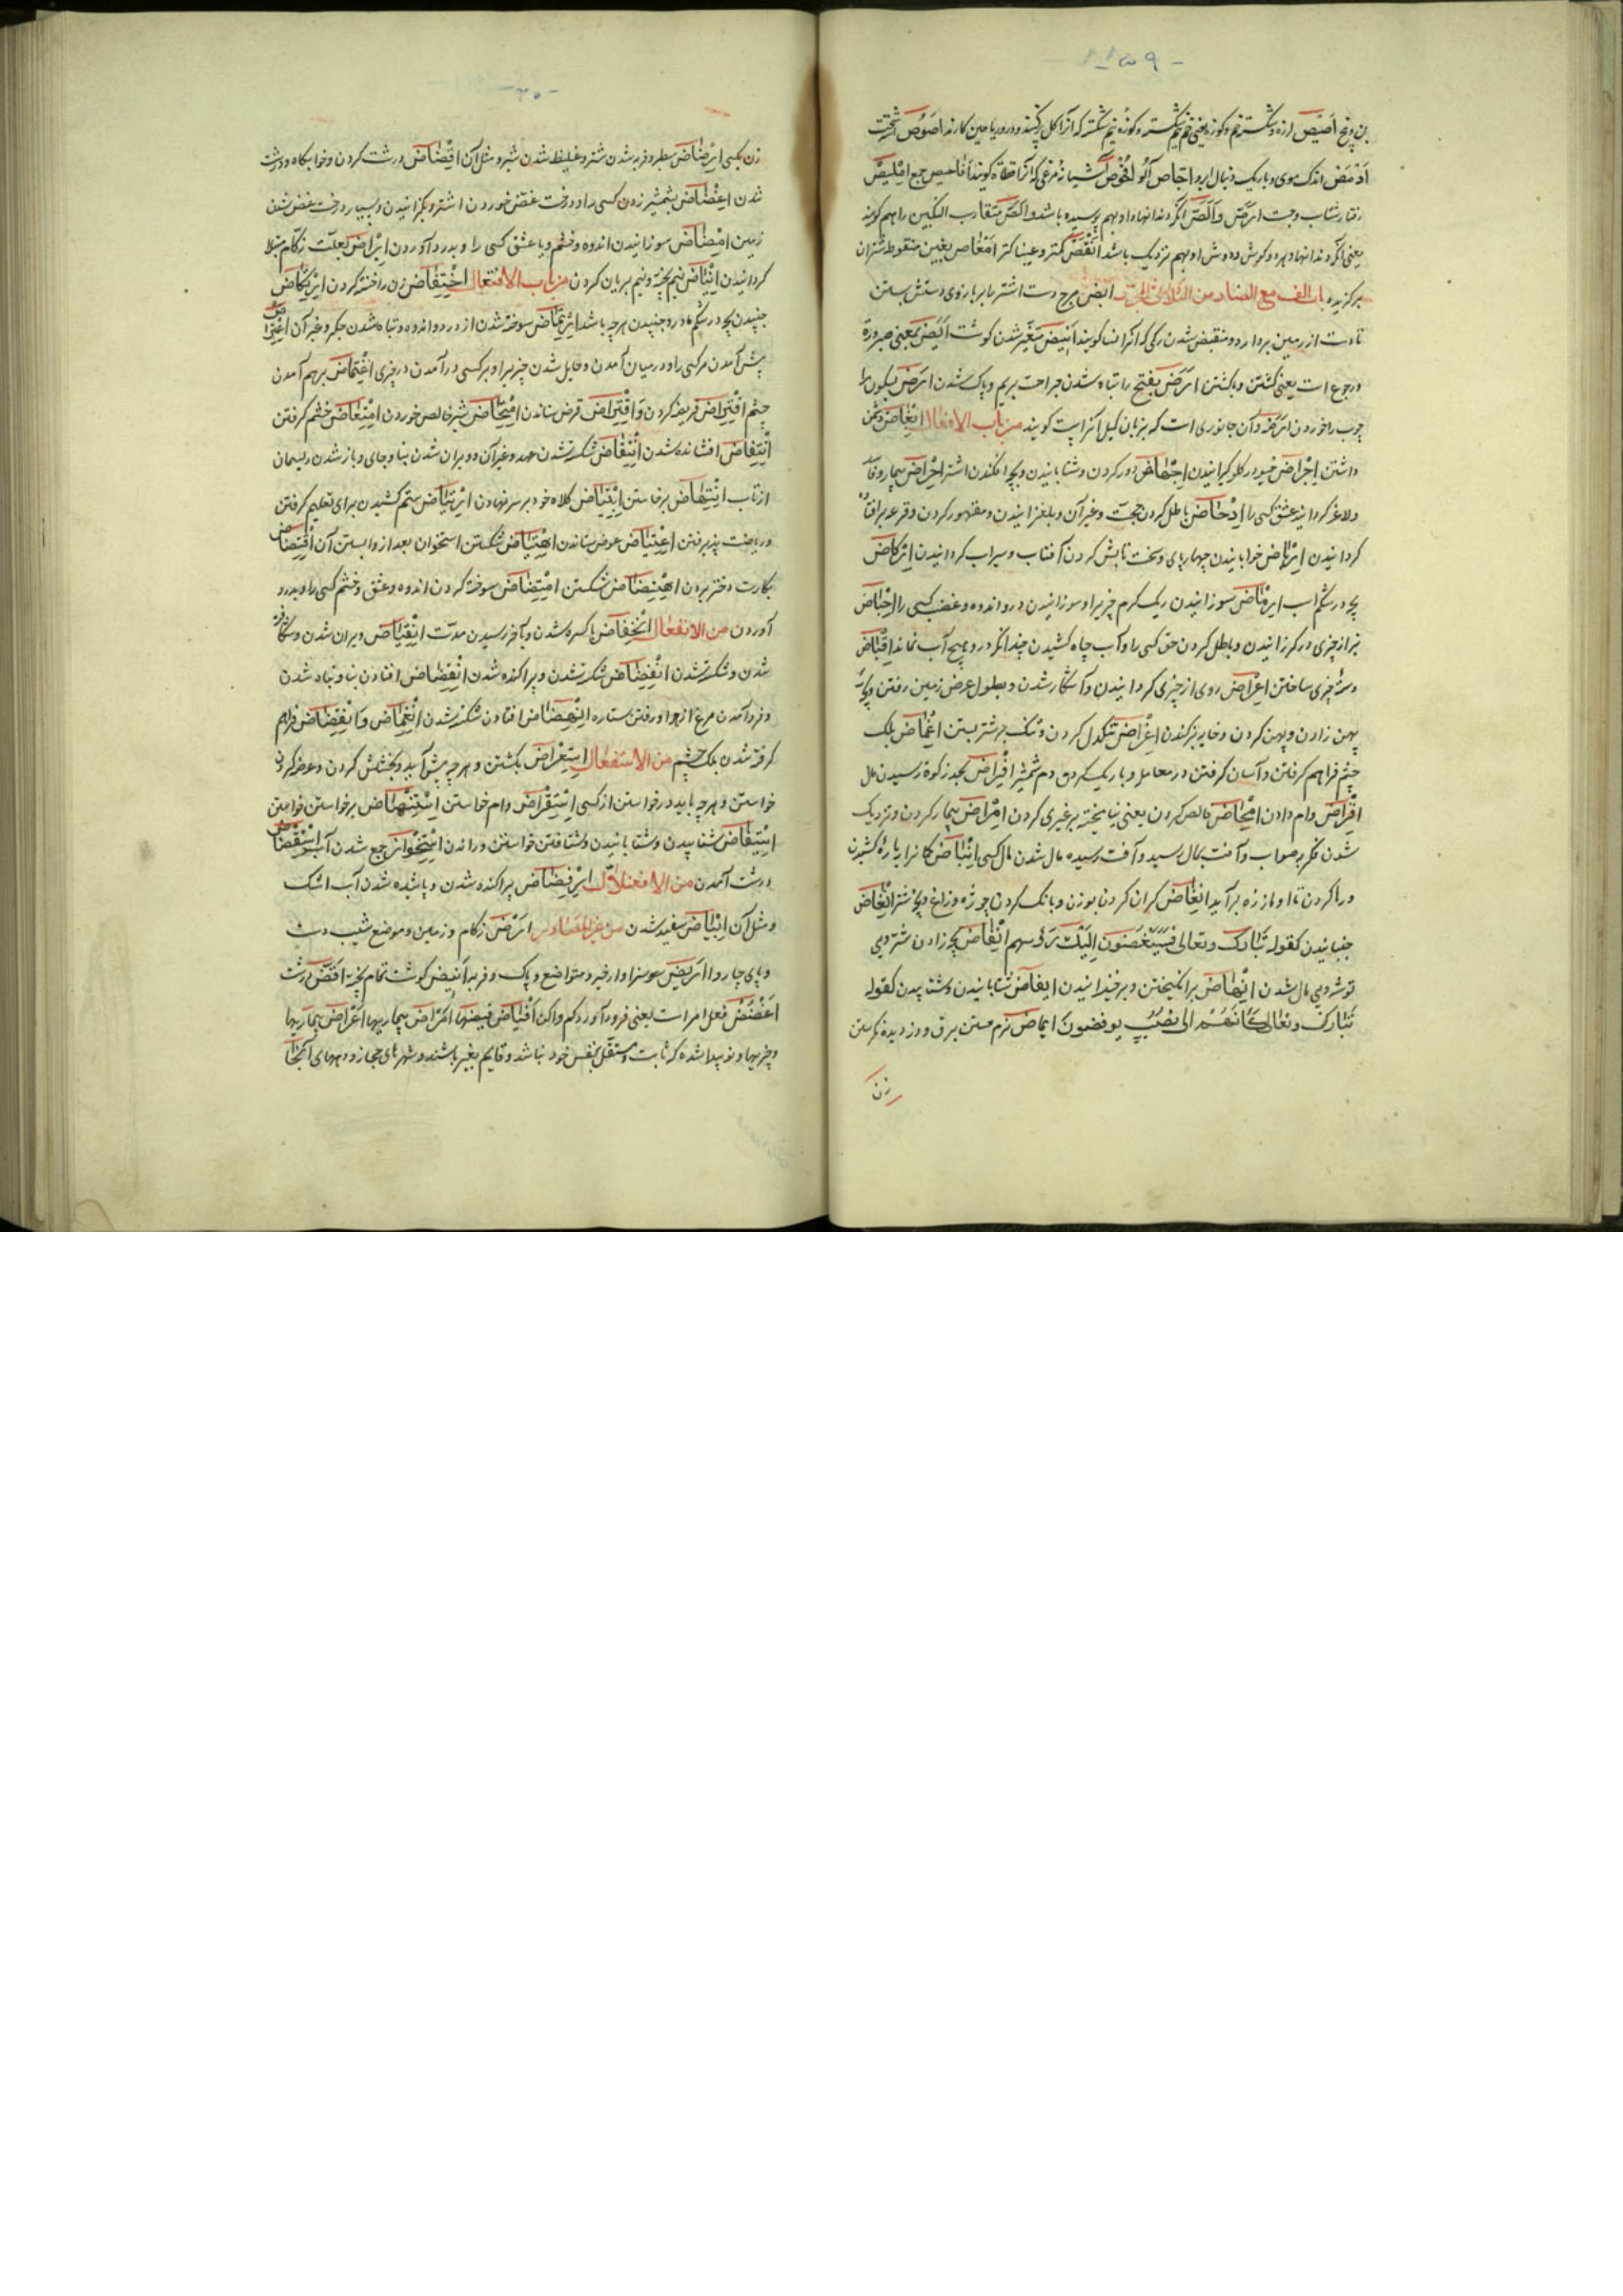 بن و بیخ اَصِیْص لرزه و شکسته خم و کوزه یعنی خم نیم شکسته و کوزه نیم شکسته که آنرا کل پر کنند و در و ریاحین کارند اَصُوْص
اندک موی و باریک دنبال ابرو اِجّاص آلو اُفْحُوْص آشیانه مرغی که آنرا قطاة کویند اَفاحیص جمع اِمْلِیْص
رفتار شتاب و جست اَرَصّ و اَلَصّ آنکه دندانها او بهم چسپیده باشد
یعنی آنکه دندانها و هر دو کوش و دوش او بهم نزدیک باشد اَنْقَص کمتر
برکزیده باب الف مع الضاد من الثلاثی المجرد اَبْض دست اشتر را بر بازوی دستش بستن
تا دست از زمین بردارد و منقبض شدن رکی که آنرا نسا کویند اَنِیْض متغیر شدن کوشت اَیْض بمعنی صیرورة
و رجوع است یعنی کشتن و باکشتن اَرَض بفتح را تباه شدن جراحت بریم و پاک شدن اَرْض بسکون را
چوب را خوردن اَرَضَه و آن جانوری است که بزبان کیل آنرا پت کویند من باب الافعال اِبْغاض دشمن
داشتن اِجْراض خیو در کلو کیرانیدن اِجْهاض دور کردن و شتابانیدن و بچه افکندن اشتر اِحْراض بیمار
و لاغر کردانیدن عشق کسی را اِدْحاض باطل کردن حجت و غیر آن و بلغزانیدن و مقهور کردن و قرعه بر افتاده
کردانیدن اِرْباض خوابانیدن چهارپای و سخت تابش کردن آفتاب و سیراب کردانیدن اِرْکاض
بچه در شکم اسب اِرْماض سوزانیدن ریک کرم چیز را و سوزانیدن درد و اندوه و غضب کسی را اِحْباض
تیر از چیزی در کذرانیدن و باطل کردن حق کسی را و آب چاه کشیدن چندانکه در و هیچ آب نماند اِقْباض
دسته چیزی ساختن اِعْراض روی از چیزی کردانیدن و آشکار شدن و بطول عرض زمین رفتن
پهن زادن و پهن کردن و خایه بز کندن اِغْراض تنکدل کردن و تنک بر شتر بستن اِغْماض پلک
چشم فراهم کرفتن و آسان کرفتن در معامله و باریک کردن دم شمشیر اِفْراض بحد زکوة رسیدن مال
اِقْراض وام دادن اِمْحاض خالص کردن یعنی نیامیخته بغیری کردن اِمْراض بیمار کردن و نزدیک
شدن فکر بصواب و آفت بمال رسیدن و آفت رسیده مال شدن مال کسی اِنْباض کمانرا یا زه کشیدن
و رها کردن تا آواز از زه بر آید اِنْقاض کران کردن بوزن و بانک کردن چوزه و زاغ و بچه شتر اِنْغاض
جنبانیدن کقوله تبارک و تعالی فَسَیُنْغِضُونَ اِلَیْکَ رُؤُسَهم اِنْفاض بچه زادن شتر و بی
توشه و بی مال شدن اِنْهاض برانکیختن و برخیزانیدن اِیفاض شتابانیدن و شتابیدن کقوله
تبارک و تعالی کَاَنَّهُمْ اِلی نُصُبٍ یوفضون اِیماض نرم جستن برق و دزدیده نکرستن
زن
زن بکسی اِرْضاض سطبر و فربه شدن شتر و غلیظ شدن شیر و مثل آن اِقْضاض درشت کردن و خوابکاه درشت
شدن اِعْضاض بشمشیر زدن کسی را و درخت عضّ خوردن اشتر و بکزانیدن و بسیار درخت عض شدن
زمین اِمْضاض سوزانیدن اندوه و خشم و یا عشق کسی را و بدرد آوردن اِیْراض بعلت زکام مبتلا
کردانیدن اِنْیاض نیم پخته و نیم بریان کردن من باب الافتعال اِخْتِفاض زن را ختنه کردن اِرْتِکاض
جنبیدن بچه در شکم مادر و جنبیدن هر چه باشد اِرْتِماض سوخته شدن از درد و اندوه و تباه شدن جکر و غیر آن اِعْتِراض
پیش آمدن مر کسی را و در میان آمدن و حایل شدن چیز را و بر کسی در آمدن در چیزی اِغْتِماض بر هم آمدن
چشم اِفْتِراض فریضه کردن و اِقْتِراض قرض ستاندن اِمْتِحاض شیر خالص خوردن اِمْتِعاض خشم کرفتن
اِنْتِفاض افشانده شدن اِنْتِقاض شکسته شدن عهد و غیر آن و ویران شدن بنا و جای و باز شدن ریسمان
از تاب اِنْتِهاض برخاستن اِبْتِیاض کلاه خود بر سر نهادن اِرْتِیاض ستم کشیدن برای تعلیم کرفتن
و ریاضت پذیرفتن اِعْتِیاض عوض ستاندن اِهْتِیاض شکستن استخوان بعد از وا بستن آن اِقْتِضاض
بکارت دختر بردن اِهْتِضاض شکستن اِمْتِضاض سوخته کردن اندوه و عشق و خشم کسی را و بدرد
آوردن من الانفعال اِنْخِفاض با کسره شدن و بآخر رسیدن مدت اِنْقِیاض ویران شدن و شکافته
شدن و شکسته شدن اِنْفِضاض شکسته شدن و پراکنده شدن اِنْقِضاض افتادن بنا و تباه شدن
و فرود آمدن مرغ از هوا و رفتن ستاره اِنْهِضاض افتادن شکسته شدن اِنْغِماض و اِنْقِباض فراهم
کرفته شدن پلک چشم من الاستفعال اِسْتِعْراض بکشتن و هر چه پیش آید و بخشش کردن و عرض کردن
خواستن و هر چه باید درخواستن از کسی اِسْتِقْراض وام خواستن اِسْتِنْهاض برخواستن خواستن
اِسْتِیفاض شتابیدن و شتابانیدن و شتافتن خواستن و راندن جمع شدن آب
درشت آمدن من الافعنلال اِرْفِضاض پراکنده شدن و پاشیده شدن آب اشک
و مثل آن اِبْیاض سفید شدن من غیر المصادر اَرْض زکام و زمین و موضع شیب دست
و پای چاروا اَرِیْض سزاوار خیر و متواضع و پاک و فربه اَنِیض کوشت تمام پخته اَقَضّ درشت
اُغْضُضْ فعل امر است یعنی فرود آور و کم و اکن اَقْیاض اَمْراض بیماریها اَعْراض بیماریها
و چیزیها و نو پیدا شده که ثابت و مستقل بنفس خود نباشد و قایم بغیر باشند و شهرهای حجاز و دیههای آنجا